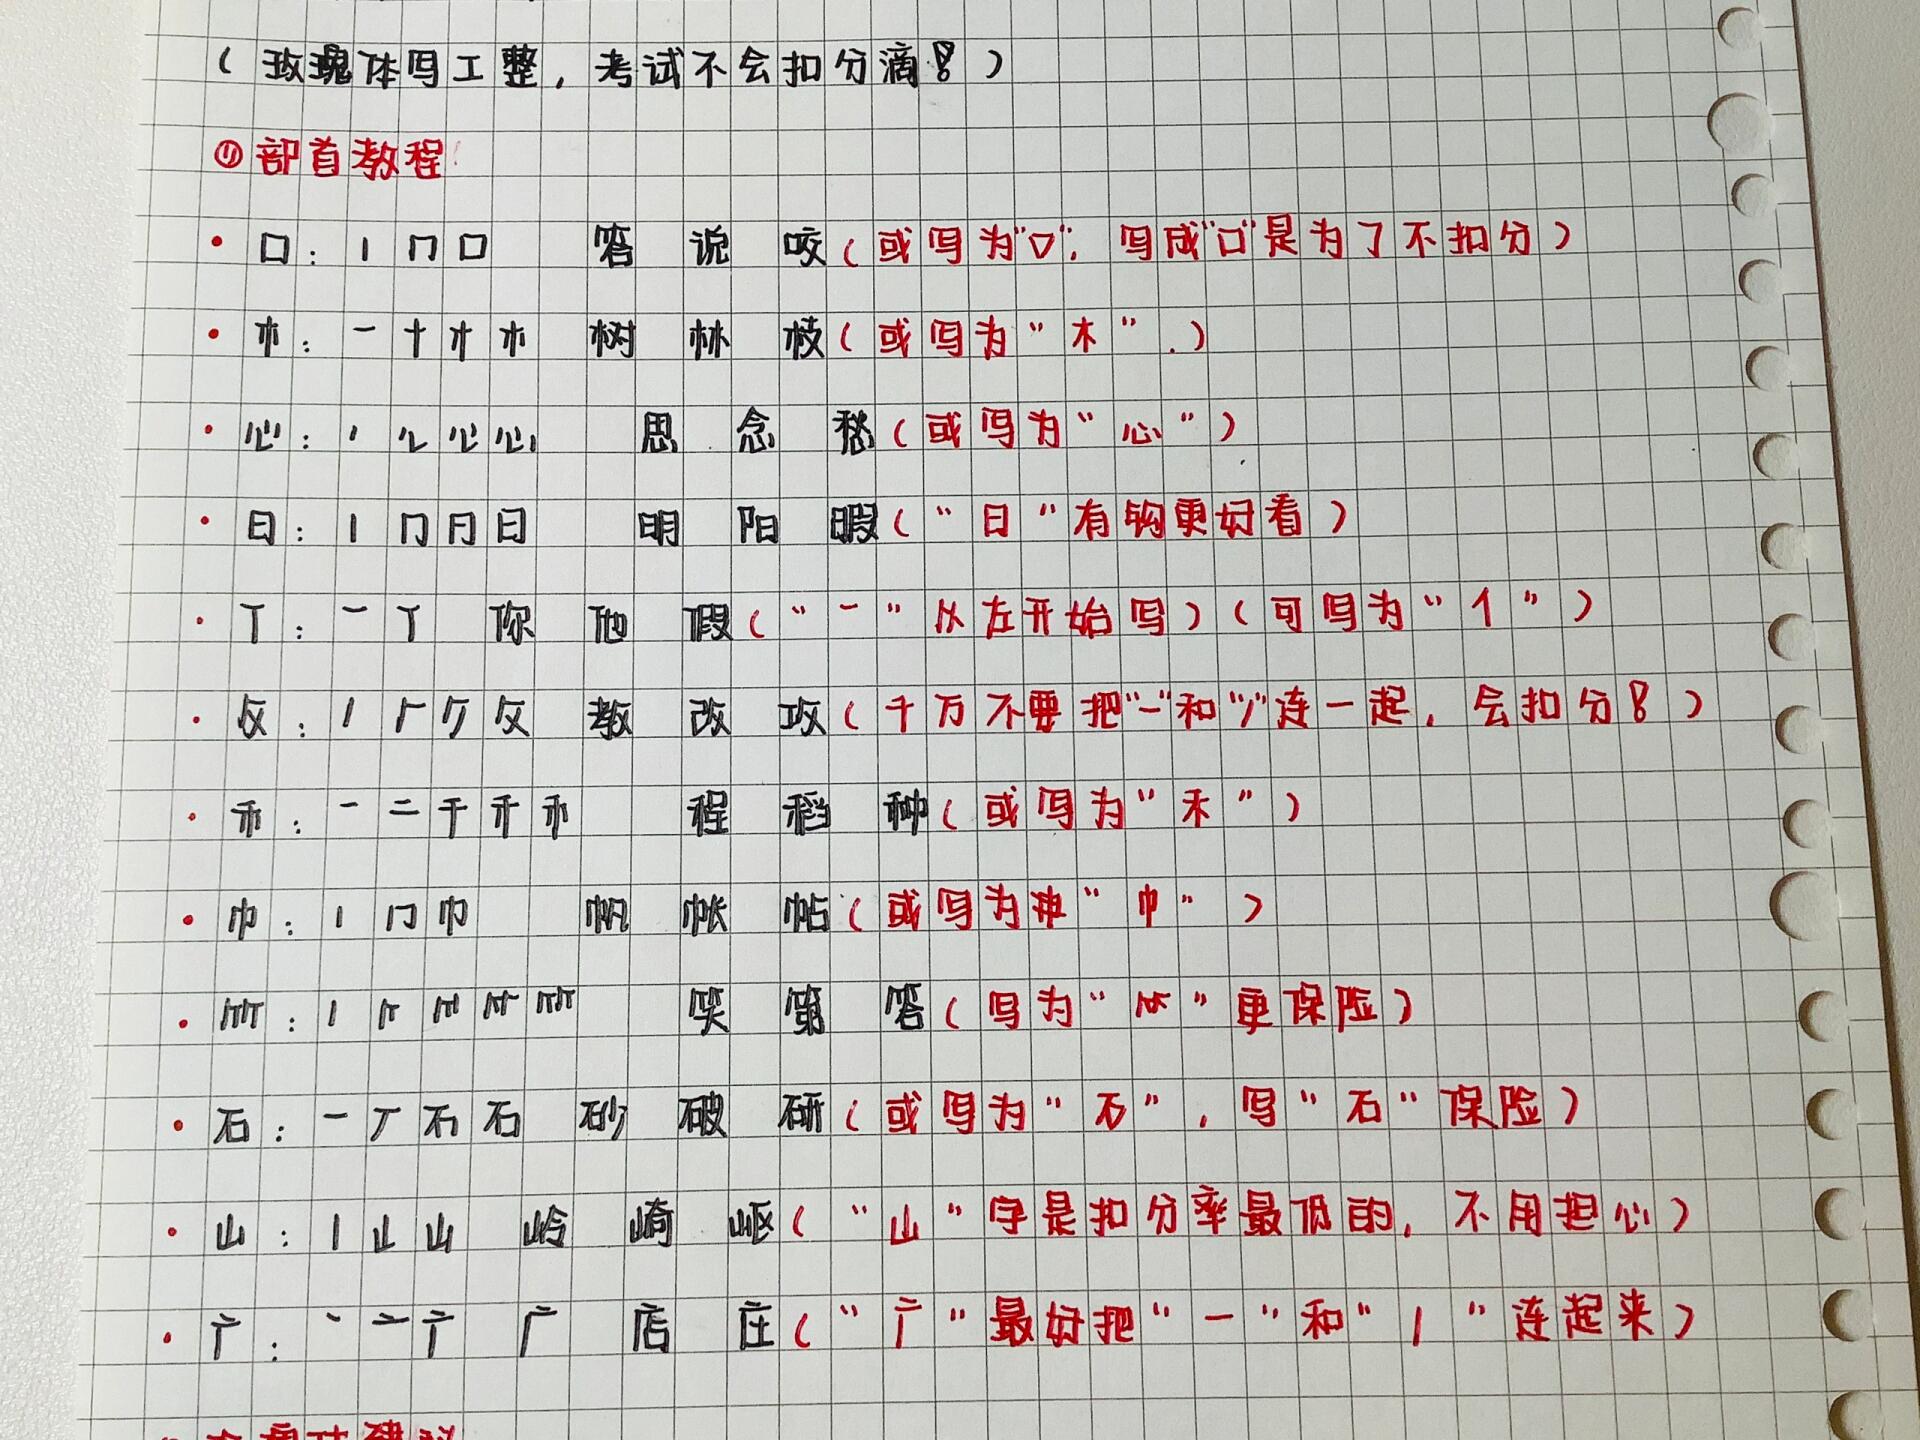 （玫瑰体写工整，考试不会扣分滴！）
①部首教程！
·口：丨冂口 答 说 咬（或写为“▽”，写成“口”是为了不扣分）
·木：一十才木 树 林 枝（或写为“木”.）
·心： 思 念 愁（或写为“心”）
·日：丨冂月日 明 阳 暇（“日”有钩更好看）
·亻：一亻 你 他 假（“一”从左开始写）（可写为“亻”）
·攵： 教 改 攻（千万不要把“一”和“丿”连一起，会扣分！）
·禾：一二千禾禾 程 稻 种（或写为“禾”）
·巾：丨冂巾 帆 帐 帖（或写为“巾”）
·竹： 笑 第 答（写为“⺮”更保险）
·石：一丆石石 砂 破 研（或写为“石”，写“石”保险）
·山：丨山山 岭 崎 岖（“山”字是扣分率最低的，不用担心）
·广：丶亠广 广 店 庄（“广”最好把“一”和“丿”连起来）